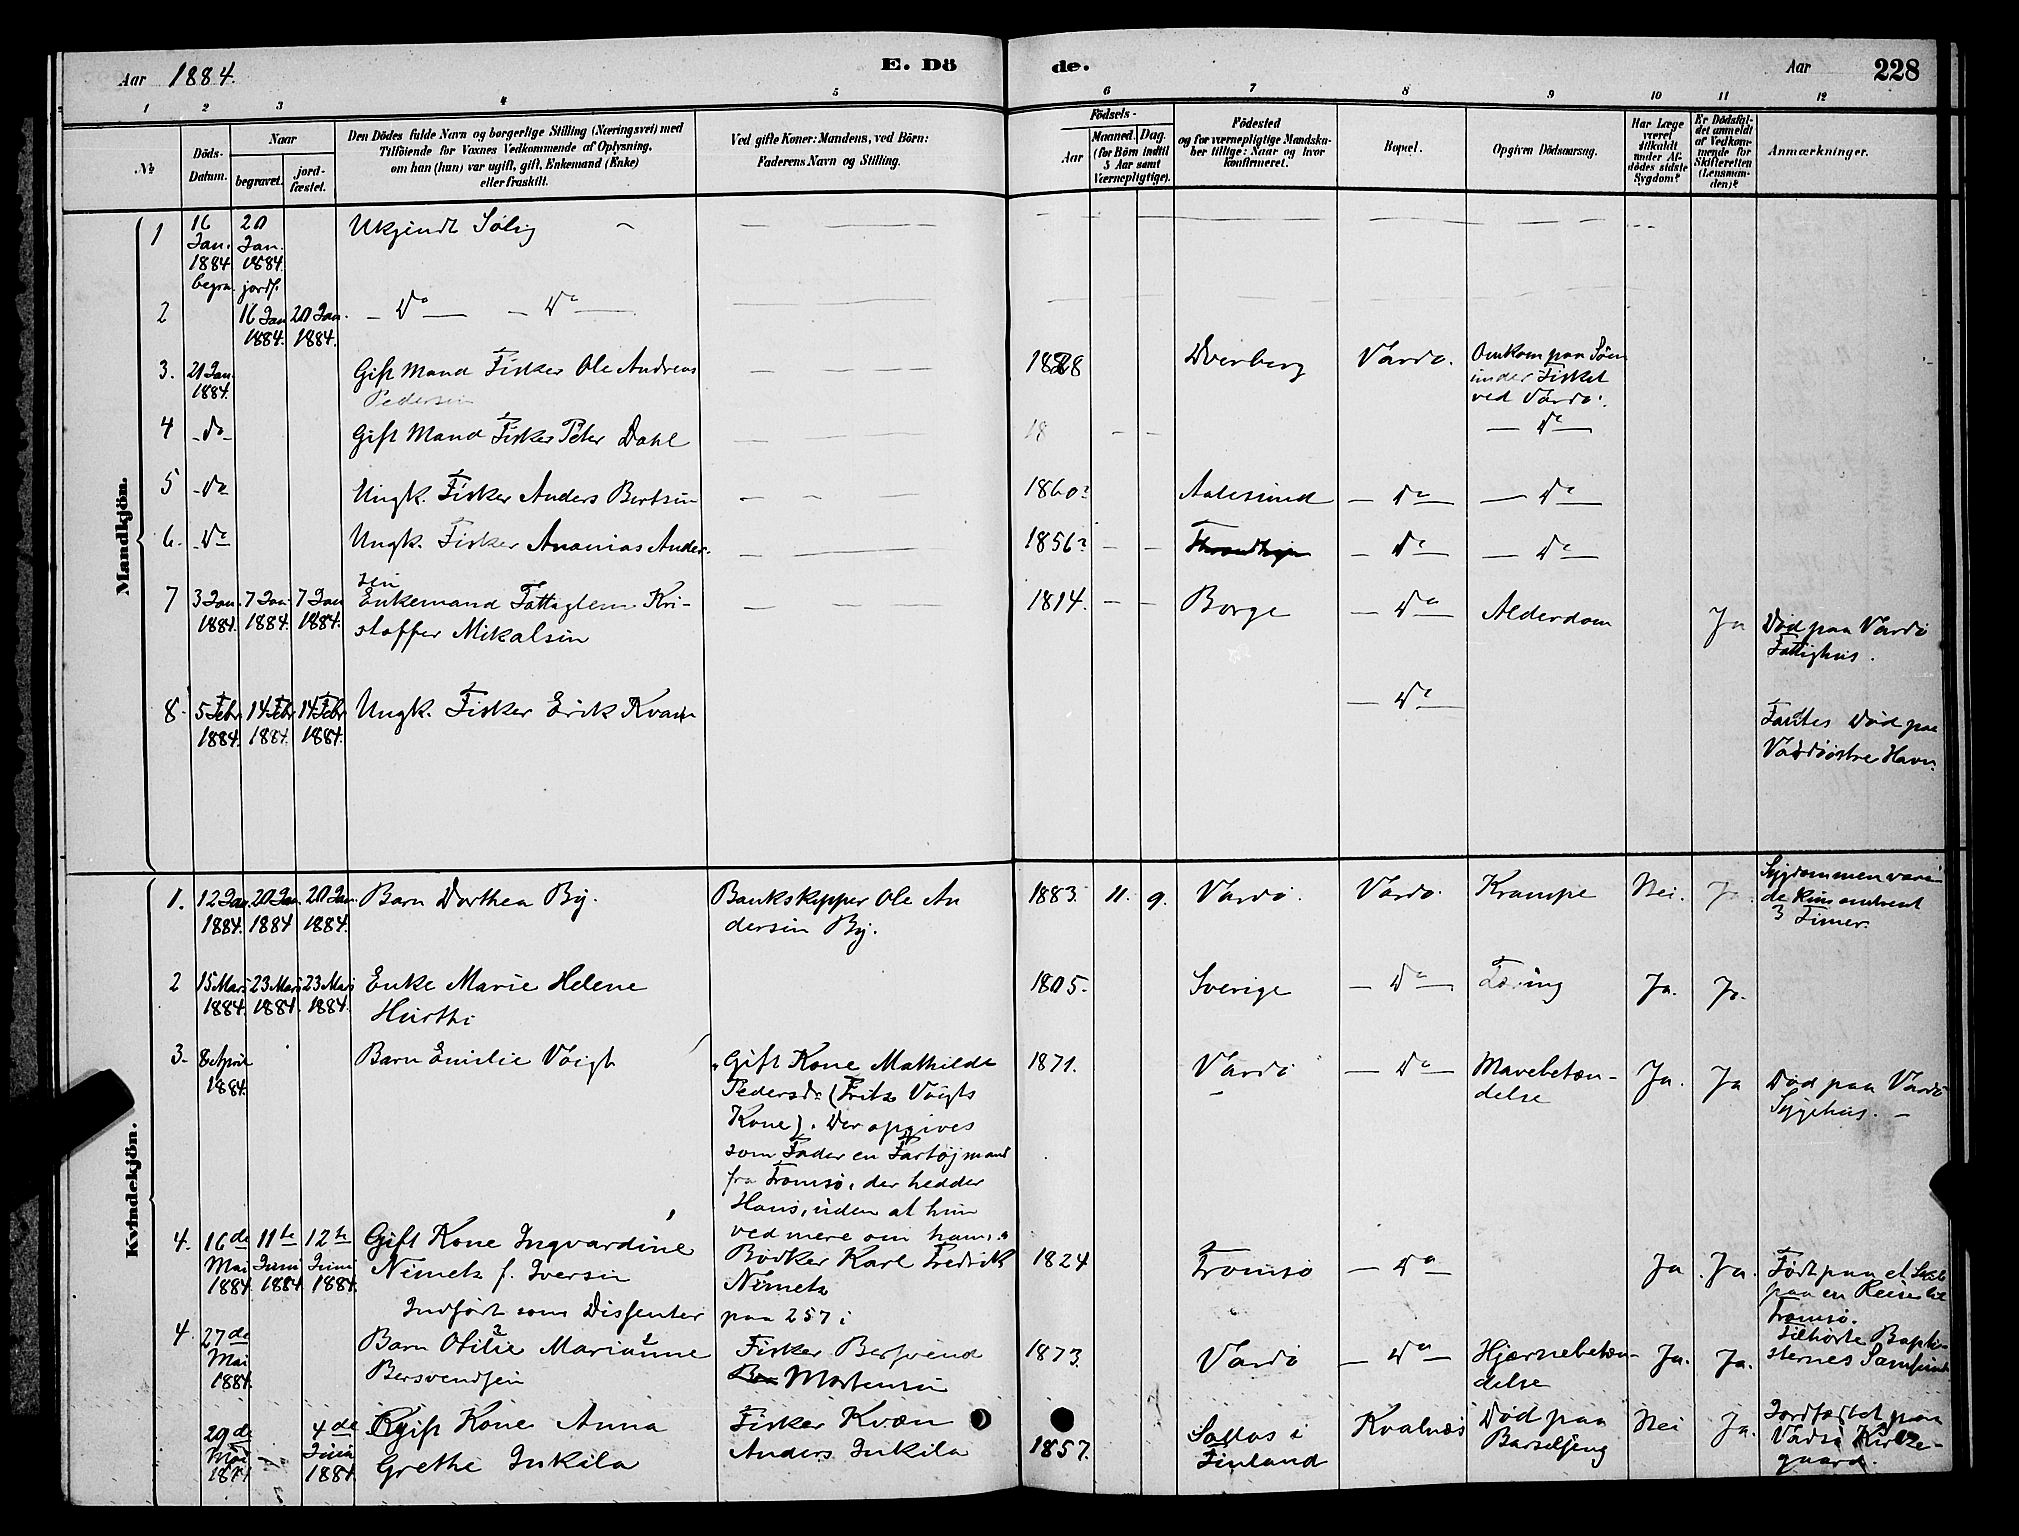 Aar 1884.
E. Dö
de.
Aar
228
1 2 3 4 5 6 7 8 9 10 11 12
No
Döds-
Datum.
Naar
begravet.
jord-
fæstet.
Den Dödes fulde Navn og borgerlige Stilling (Næringsvei) med
Tilföiende for Voxnes Vedkommende af Oplysning,
om han (hun) var ugift, gift, Enkemand (Enke)
eller fraskilt.
Ved gifte Koner: Mandens, ved Börn:
Faderens Navn og Stilling.
Födsels-
Aar
Maaned.
Dag.
(for Börn indtil
5 Aar samt
Værnepligtige).
Födested
og for værnepligtige Mandska-
ber tillige: Naar og hvor
konfirmeret.
Bopæl.
Opgiven Dödsaarsag.
Har Læge
været
tilkaldt
under Af-
dödes sidste
Sygdom?
Er Dödsfal-
det anmeldt
af Vedkom-
mende for
Skifteretten
(Lensman-
den)?
Anmærkninger.
Mandkjön.
1 16 Jan. 1884 20 Jan. 1884. Ukjendt Sølig
begra. jordf.
2 16 Jan 1884. 20 Jan. 1884. — Do — — Do —
3. 21 Jan. 1884. Gift Mand Fisker Ole Andreas
Pedersen 1828 Dverberg Vardø. Omkom paa Søen
under Fisket
ved Vardø.
4 -do- Gift Mand Fisker Peter Dahl 18 — — — Do —
5 -do- Ungk. Fisker Anders Bertsen 1860? Aalesund — Do — — Do —
6. -Do- Ungk. Fisker Ananias Ander-
sen 1856? — — — Do — — Do —
7 3 Jan. 1884. 7 Jan. 1884. 7 Jan 1884. Enkemand Fattiglem Kri-
stoffer Mikalsen 1814. — — Borge — Do — Alderdom Ja Død paa Vardø
Fattighus.
8 5 Febr 1884. 14 Febr 1884. 14 Febr 1884. Ungk. Fisker Erik Kvam — Do —
Død paa
Havn.
Kvindekjön.
1. 12 Jan. 1884. 20 Jan. 1884 20 Jan. 1884. Barn Dorthea By. Bankskipper Ole An
dersen By. 1883. 11. 9. Vardø. Vardø. Krampe Nei. Ja. Sygdommen vare-
de kun omtrent
3 Timer.
2 15 Mars 1884. 23 Mars 1884. 23 Mars 1884. Enke Marie Helene
Hurthi 1805. Sverige — Do — Tæring Ja. Ja.
3. 8 April 1884. Barn Emilie Voigt Gift Kone Mathilde
Pedersdr (Fritz Voigts
Kone). Der opgives
som Fader en Fartøjmand
fra Tromsø, der hedder
Hans, uden at hun
ved mere om ham. 1871. Vardø — Do — Mavebetæn-
delse Ja. Ja Død paa Vardø
Sygehus. —
4. 16de Mai 1884. 11te Juni 1884 12te Juni 1884. Gift Kone Ingvardine
Nimetz f. Iversen
Indført som Dissenter Bødker Karl Fredrik
Nimetz
paa 257 1824 Tromsø — Do — Ja. Ja. Født paa et
paa en Reise til
Tromsø.
4. 27de Mai 1884. Barn Otilie Marianne
Bersvendsen Fisker Bersvend
Mortensen 1873. Vardø — Do — Hjærnebetæn-
delse Ja. Ja. Tilhørte Bapti-
sternes Samfund
29de Mai 1884 — 4de Juni 1884. Gift Kone Anna
Grethe Inkila Fisker Kvæn
Anders Inkila 1857. Sallas i
Finland Kvalnæs Død paa
Barselseng Nei Ja. Jordfæstet paa
Vadsø Kirke-
gaard.